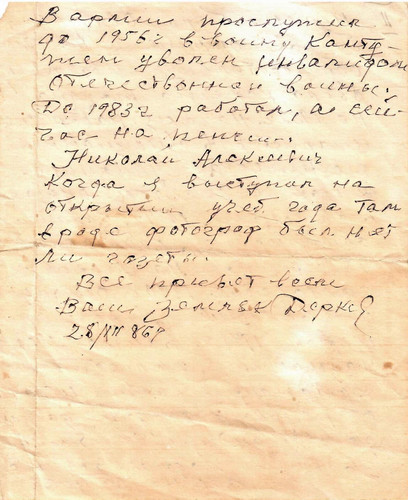 В армии прослужил
до 1956 г в войну Конту-
жен уволен инвалидом
Отечественной войны.
До 1983 г работал, а сей-
час на пенсии.
Николай Алексеевич
Когда я выступал на
открытии учеб. года там
вроде фотограф был нет
ли газеты.
Все привет всем
Ваш земляк
28/ 86г